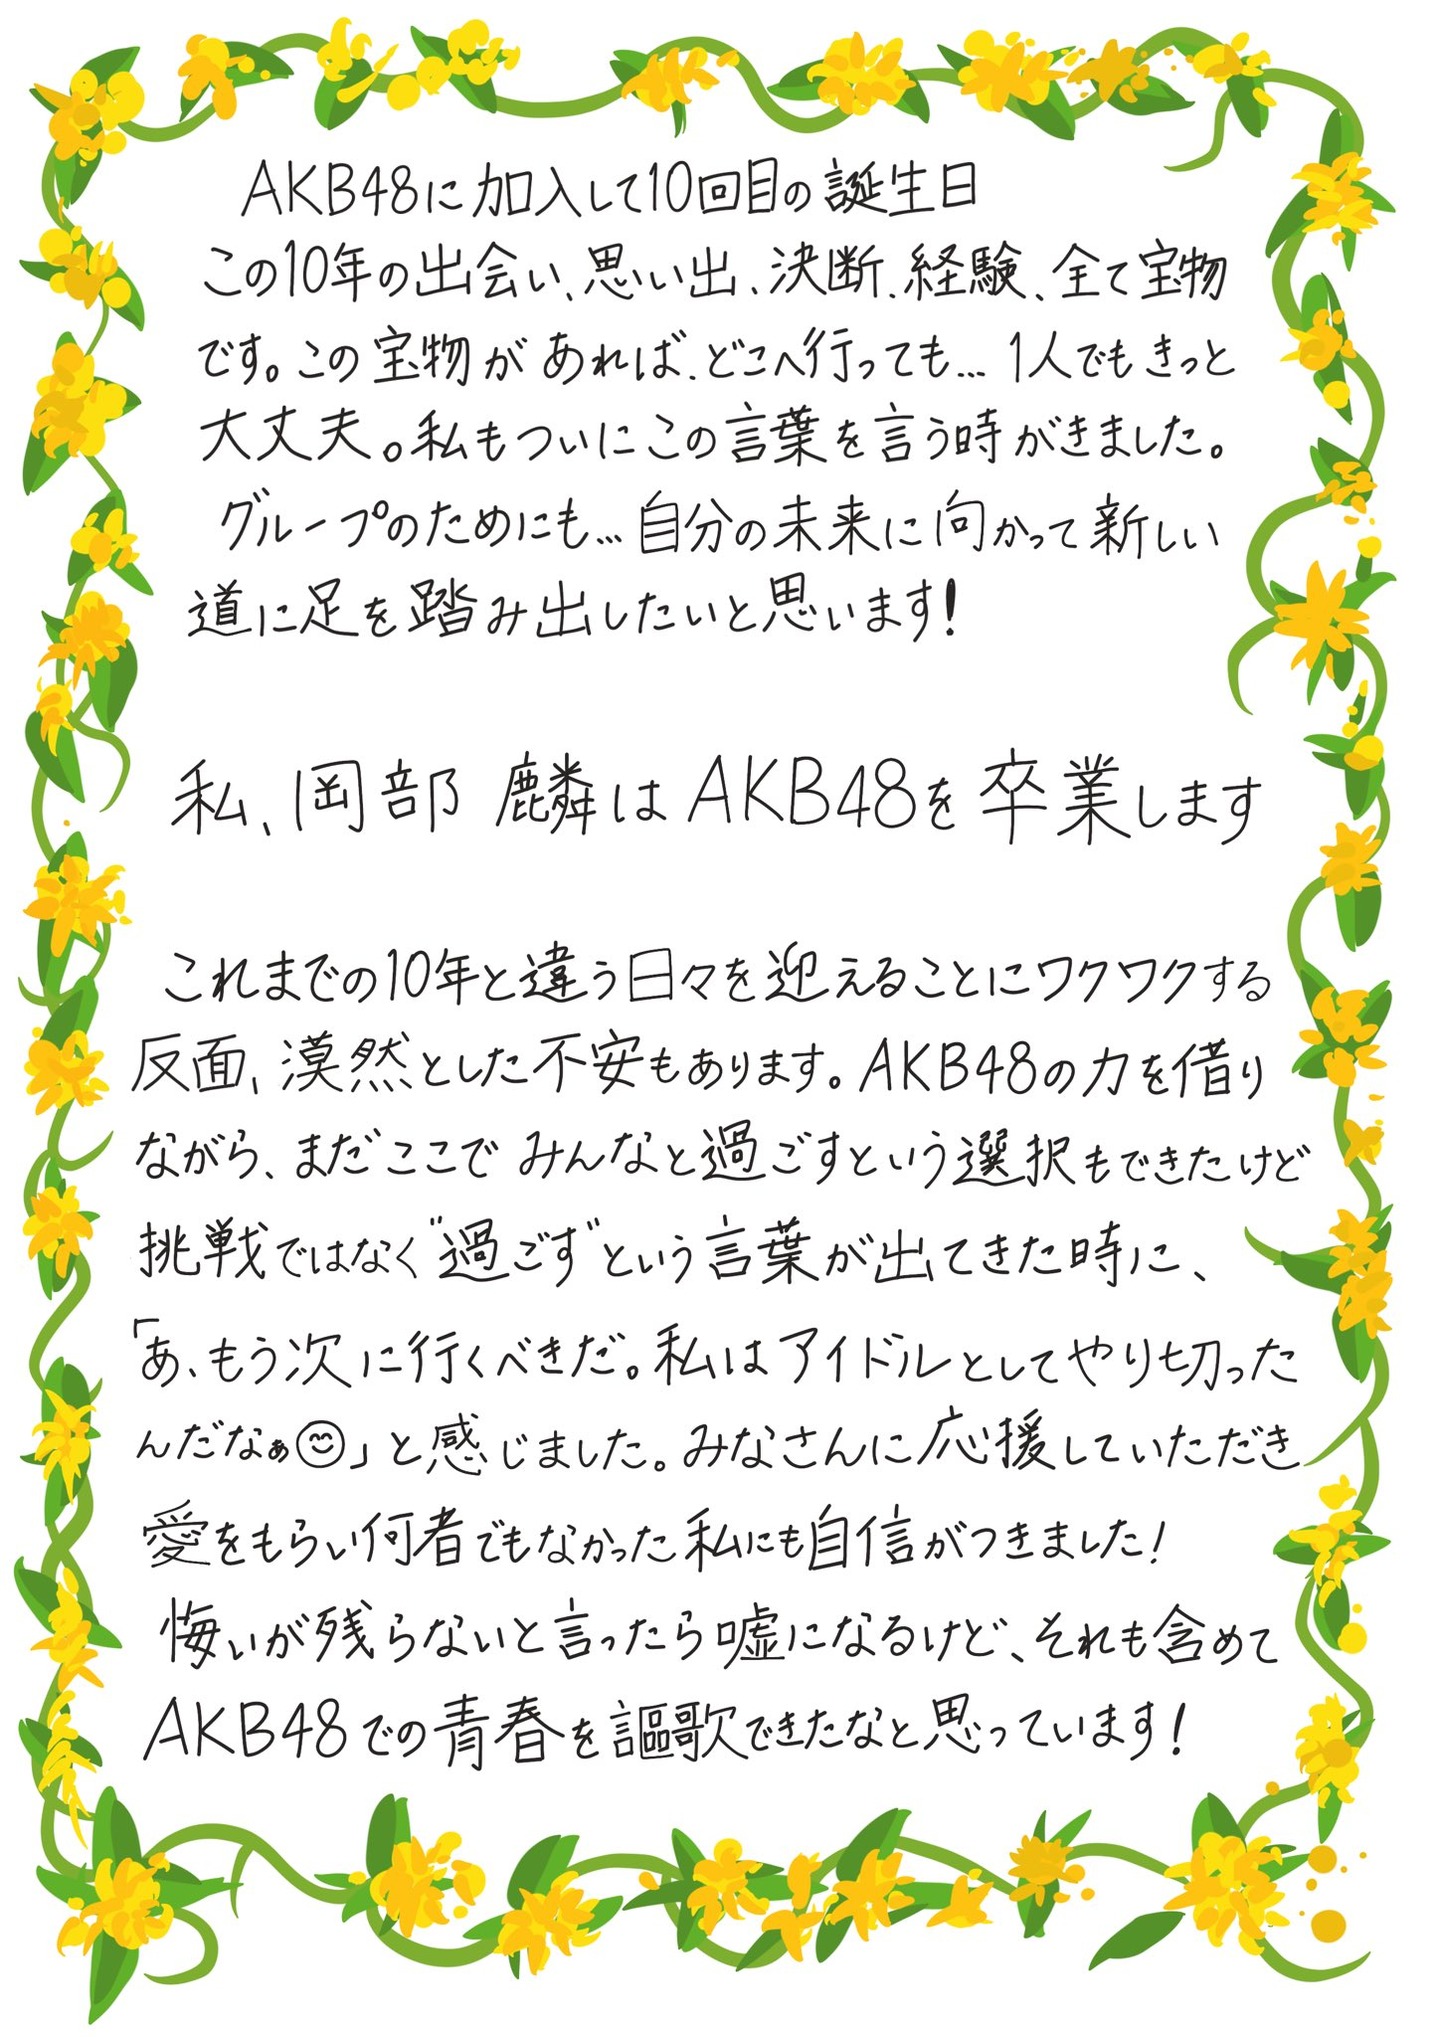 AKB48に加入して10回目の誕生日
この10年の出会い、思い出、決断、経験、全て宝物
です。この宝物があれば、どこへ行っても…1人でもきっと
大丈夫。私もついにこの言葉を言う時がきました。
グループのためにも…自分の未来に向かって新しい
道に足を踏み出したいと思います!
私、岡部 麟はAKB48を卒業します
これまでの10年と違う日々を迎えることにワクワクする
反面、漠然とした不安もあります。AKB48の力を借り
ながら、まだここでみんなと過ごすという選択もできたけど
挑戦ではなく"過ごす"という言葉が出てきた時に、
「あ、もう次に行くべきだ。私はアイドルとしてやり切った
んだなぁ😊」と感じました。みなさんに応援していただき
愛をもらい何者でもなかった私にも自信がつきました!
悔いが残らないと言ったら嘘になるけど、それも含めて
AKB48での青春を謳歌できたなと思っています!